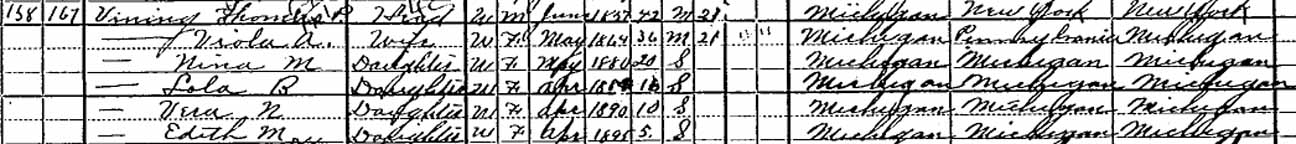 158 167 Vining Thomas P Head W M June 1857 42 M 21 Michigan New York New York
— Viola A. Wife W F May 1864 36 M 21 11 11 Michigan Pennsylvania Michigan
— Nina M Daughter W F May 1880 20 S Michigan Michigan Michigan
— Lola B Daughter W F Apr 16 S Michigan Michigan Michigan
— Vera N Daughter W F Apr 1890 10 S Michigan Michigan Michigan
— Edith May Daughter W F Apr 1895 5 S Michigan Michigan Michigan